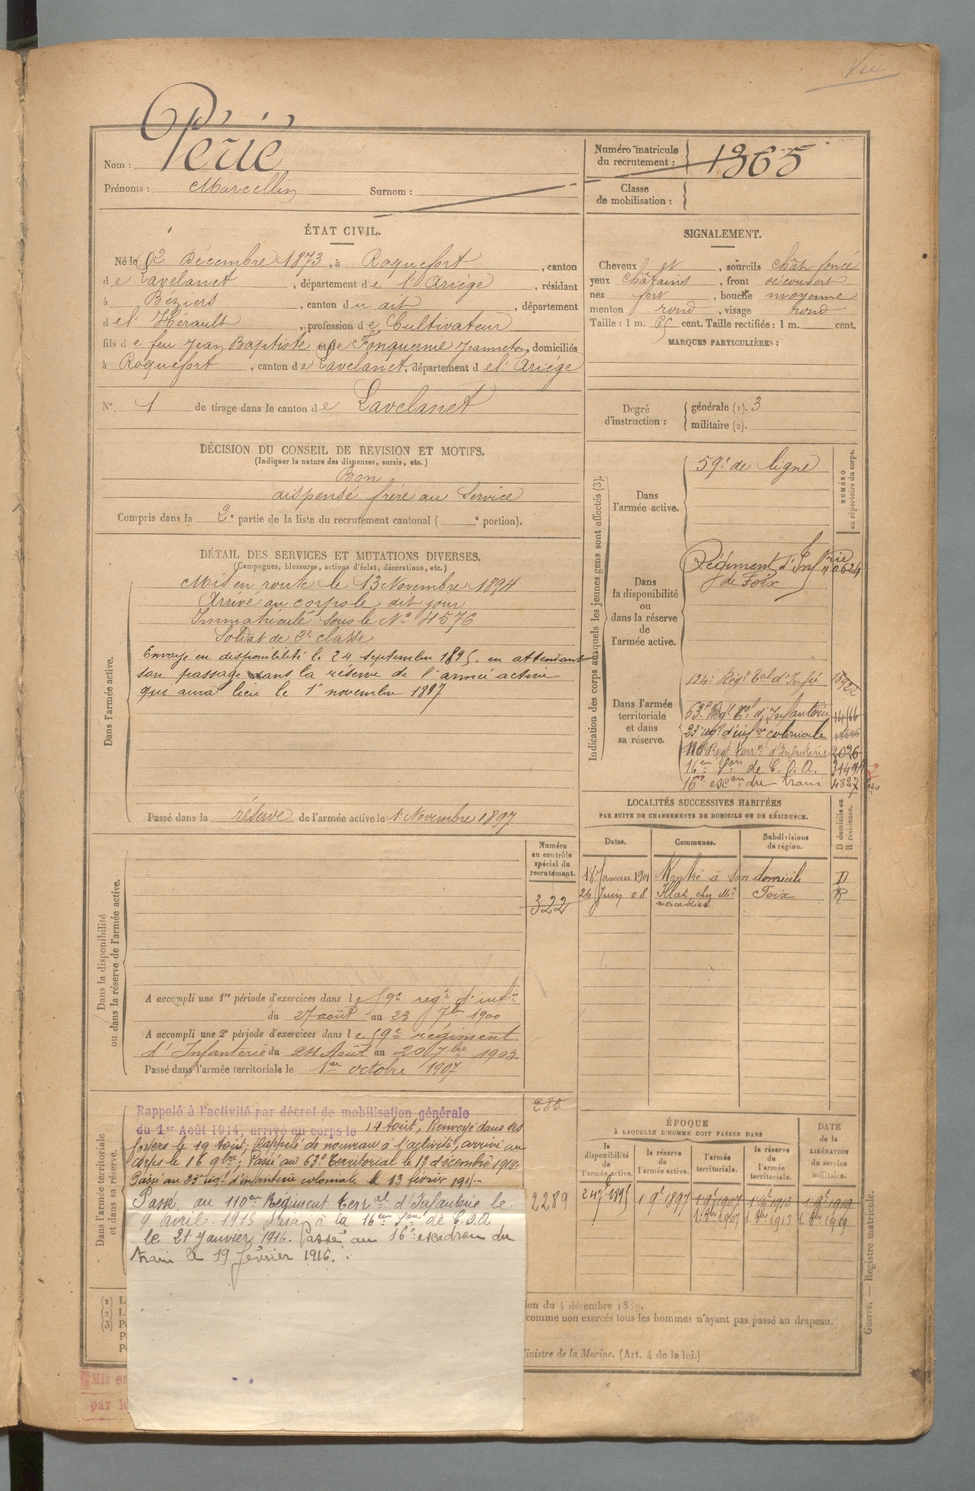 Vu
Nom : Périé
Prénoms : Marcellin Surnom :
Numéro matricule du recrutement : 1365
Classe de mobilisation :
ÉTAT CIVIL.
Né le 2 Décembre 1873, à Roquefort, canton
de Lavelanet, département de l'Ariège, résidant
à Béziers, canton du dit, département
de l'Hérault, profession de Cultivateur
fils de feu Jean Baptiste et de Jeanneton, domiciliés
à Roquefort, canton de Lavelanet, département de l'Ariège
N° 1 de tirage dans le canton de Lavelanet
SIGNALEMENT.
Cheveux et, sourcils chât foncé
yeux châtains, front découvert
nez fort, bouche moyenne
menton rond, visage rond
Taille : 1 m. 65 cent. Taille rectifiée : 1 m. cent.
MARQUES PARTICULIÈRES :
Degré d'instruction : générale (1). 3
militaire (2).
DÉCISION DU CONSEIL DE REVISION ET MOTIFS.
(Indiquer la nature des dispenses, sursis, etc.)
Bon
dispensé frère au Service
Compris dans la 2e partie de la liste du recrutement cantonal ( e portion).
DÉTAIL DES SERVICES ET MUTATIONS DIVERSES.
(Campagnes, blessures, actions d'éclat, décorations, etc.)
Dans l'armée active.
Mis en route le 13 Novembre 1894
Arrivé au corps le dit jour
Immatriculé sous le N° 4576
Soldat de 2e classe
Envoyé en disponibilité le 24 septembre 1895. en attendant
son passage dans la réserve de l'armée active
qui aura lieu le 1er novembre 1897
Passé dans la réserve de l'armée active le 1 Novembre 1897
Indication des corps auxquels les jeunes gens sont affectés (3).
NUMÉRO au répertoire du corps.
Dans l'armée active.
59e de ligne
Dans la disponibilité ou dans la réserve de l'armée active.
Régiment d'Inf rie
de Foix
Dans l'armée territoriale et dans sa réserve.
124e Régt Tal d'Infie
63e Regt Tal d'Infanterie
23e regt d'infrie coloniale
110e Regt Terral d'Infanterie 2026
16e Son de C.O.A.
16e escon du train 4827
LOCALITÉS SUCCESSIVES HABITÉES
PAR SUITE DE CHANGEMENTS DE DOMICILE OU DE RÉSIDENCE.
Dates. Communes. Subdivisions de région. D domicile ou R résidence.
18 Janvier 1901 à son domicile D
26 Juin 08 chez Mr Foix R
Dans la disponibilité ou dans la réserve de l'armée active.
Numéro au contrôle spécial du recrutement.
322
A accompli une 1re période d'exercices dans le 59e regt d'infie
du 27 août au 23 7bre 1900
A accompli une 2e période d'exercices dans le 59e régiment
d'Infanterie du 24 Août au 20 7bre 1903
Passé dans l'armée territoriale le 1er octobre 1907
Dans l'armée territoriale et dans sa réserve.
285
Rappelé à l'activité par décret de mobilisation générale
du 1er Août 1914, arrivé au corps le 14 Août, Renvoyé dans ses
foyers le 19 Août; Rappelé de nouveau à l'activité, arrivé au
corps le 16 9bre; Passé au 63e Territorial le
Passé au 23e régt d'infanterie coloniale le 13 février 1915
Passé au 110e Régiment Terral d'Infanterie le
9 avril 1915 à la 16e Son de C.O.A
le 21 Janvier 1916. Passé au 16e escadron du
train le 19 février 1916.
2289
ÉPOQUE
À LAQUELLE L'HOMME DOIT PASSER DANS
la disponibilité de l'armée active. la réserve de l'armée active. l'armée territoriale. la réserve de l'armée territoriale. DATE de la LIBÉRATION du service militaire.
24 7bre 1895 1 9e 1897 1 9e 1907 1 9e 1913 1 9e 1919
1. 8bre 1907 1. 8bre 1913 1. 8bre 1919
(1) L
(2) L
(3) P
P
P
comme non exercés tous les hommes n'ayant pas passé au drapeau.
Ministre de la Marine. (Art. 4 de la loi.)
Guerre. — Registre matricule.
Mis en
par l